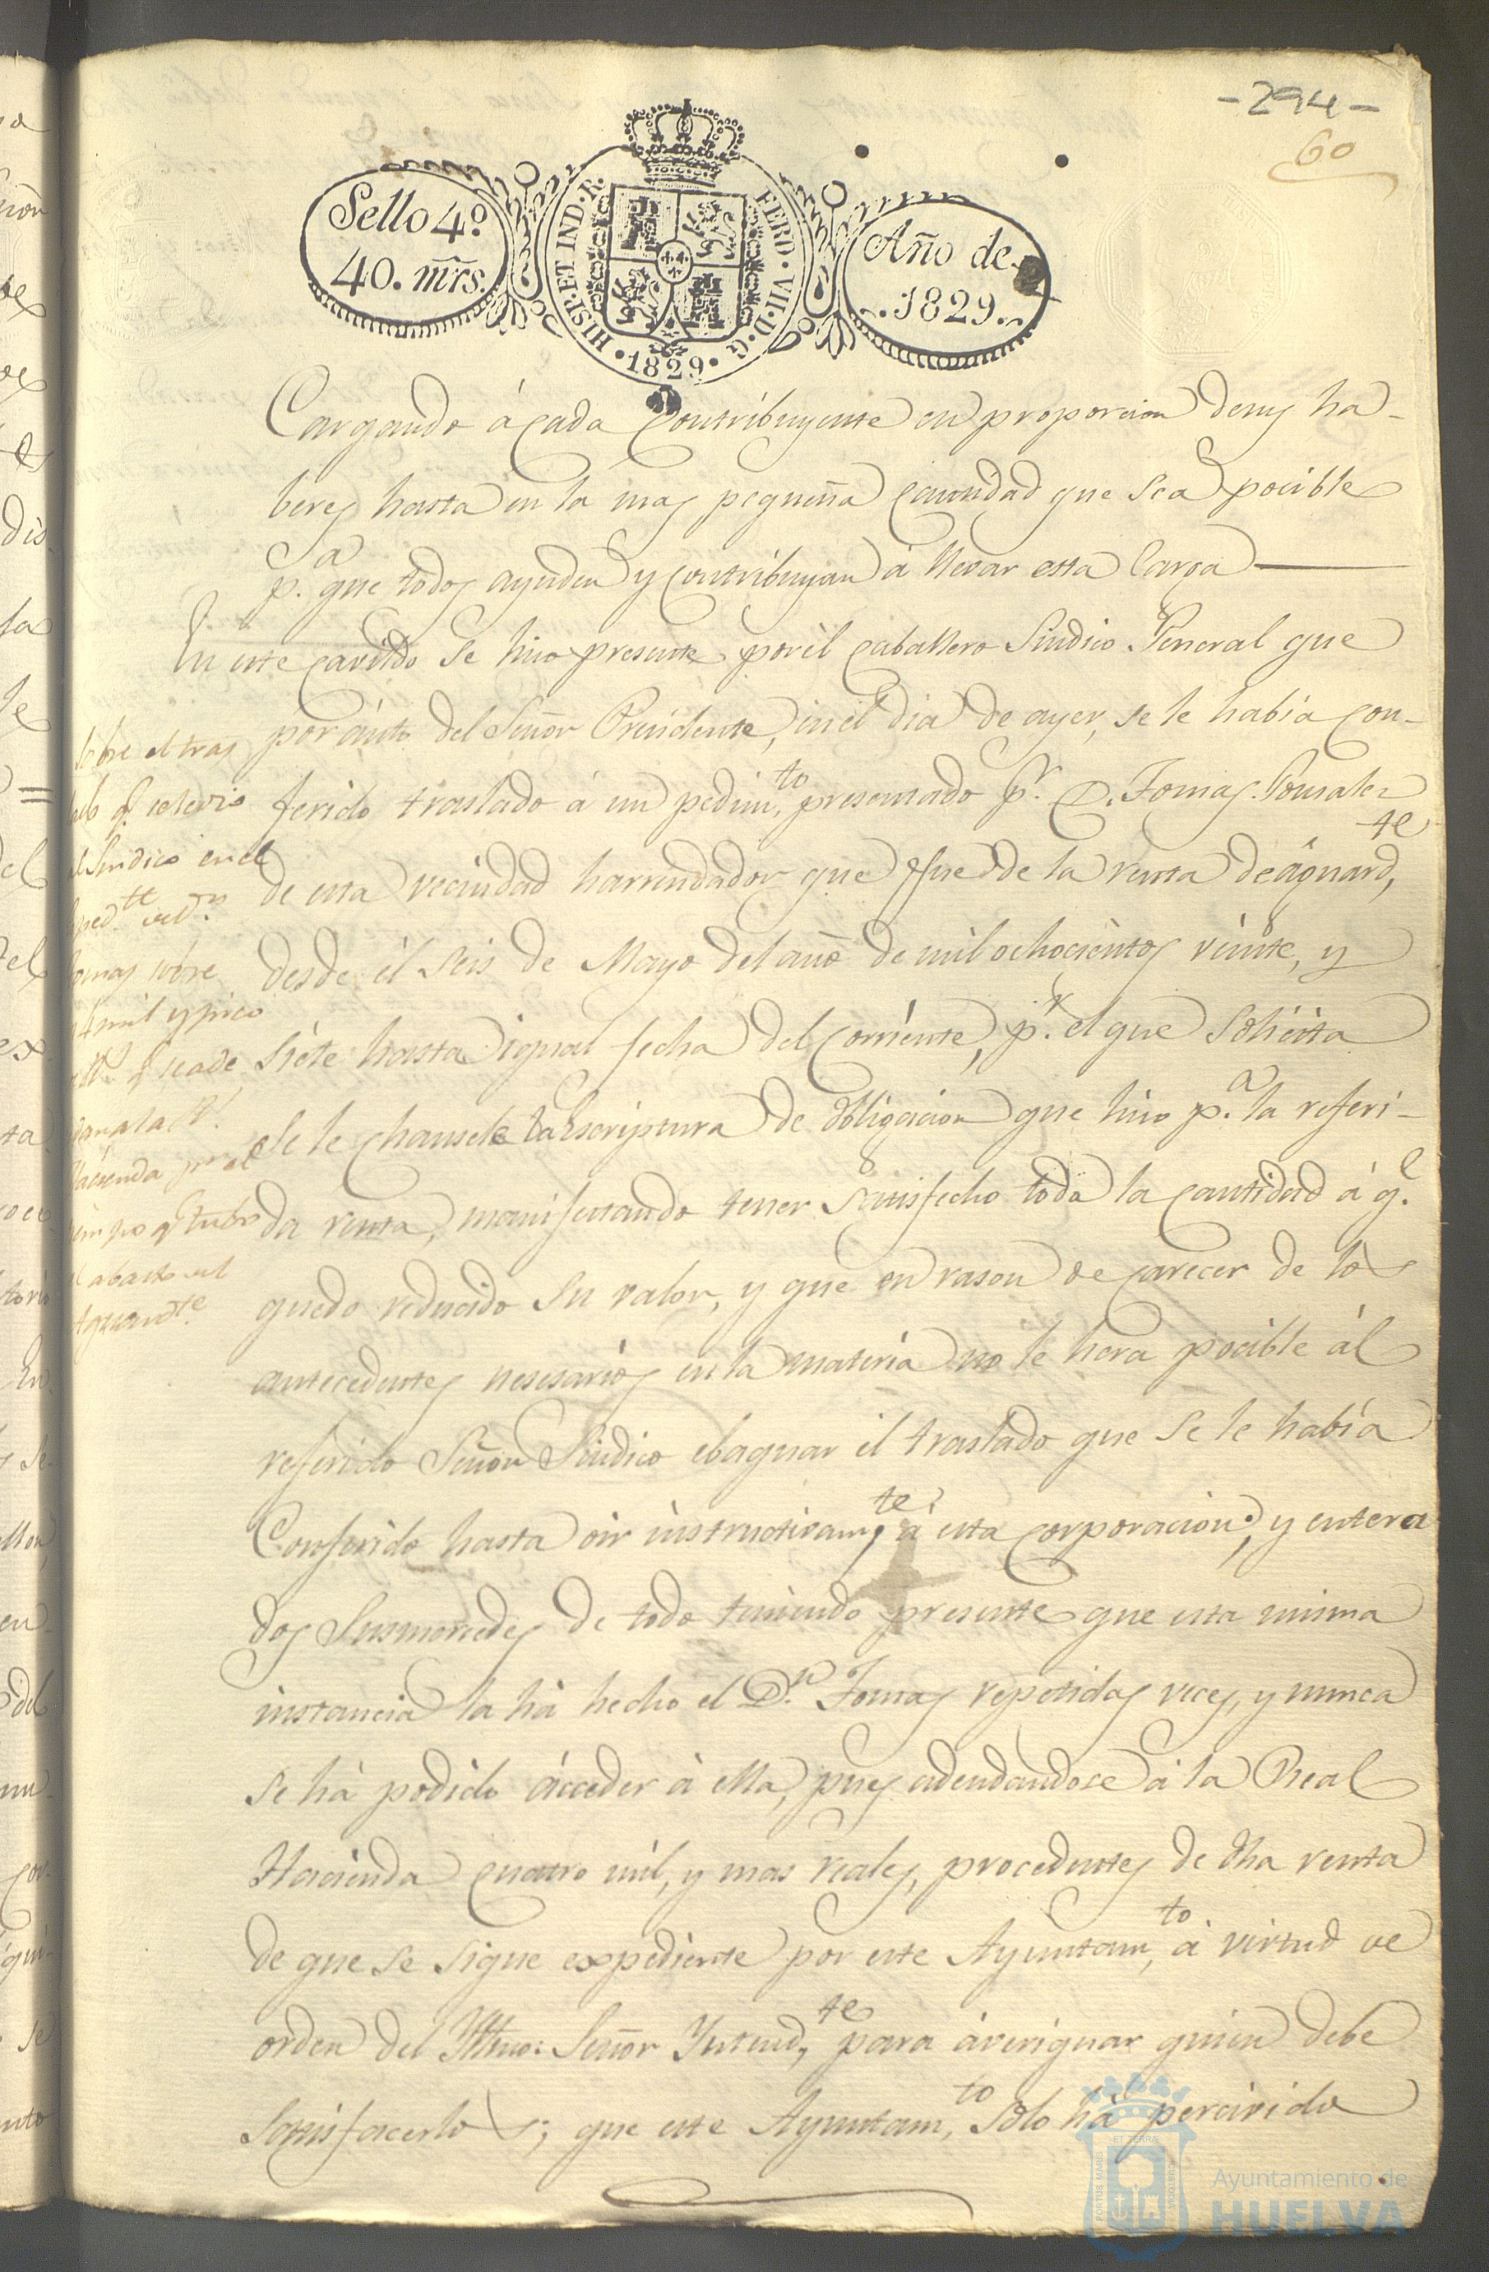 -294-
60
Sello 4º
40. mrs.
HISP. ET IND. R. FERD. VII. D. G. 1829.
Año de
1829.
Cargando á cada Contribuyente en proporcion de sus ha-
beres hasta en la mas pequeña cantidad que sea pocible
p.a que todos ayuden y contribuyan á llevar esta Carga
En este cavildo se hizo presente por el caballero Sindico General que
por auto del Señor Presidente, en el dia de ayer, se le habia con-
ferido traslado á un pedim.to presentado p.r D. Tomas Gonzalez
de esta vecindad harrendador que fue de la renta de aguard.te
desde el seis de Mayo del año de mil ochocientos veinte, y
siete hasta igual fecha del corriente, p.r el que solicita
se le chansele la Escriptura de obligacion que hizo p.a la referi-
da renta, manifestando tener satisfecho toda la cantidad á q.e
quedo reducido su valor, y que en rason de carecer de los
antecedentes nesesarios en la materia no le hera pocible al
referido Señor Sindico ebaquar el traslado que se le habia
Conferido hasta oir instructivam.te á esta corporacion; y entera
dos Susmercedes de todo teniendo presente que esta misma
instancia la há hecho el D.n Tomas repetidas veces, y nunca
se há podido acceder á ella, pues adeudandose á la Real
Hacienda cuatro mil, y mas reales, procedentes de dha renta
de que se sigue expediente por este Ayuntam.to á virtud de
orden del Yltmo. Señor Yntend.te para averiguar quien debe
satisfacerlos; que este Ayuntam.to solo há percivido
sobre el tras
q.e se le dio
Sindico en el
sobre
mil y pico
q.e se ade
a la R.l
Hacienda por el
tiempo q.e tubo
el abasto del
Aguard.te
PORTUS MARIS ET TERRAE CUSTODIA
Ayuntamiento de
HUELVA